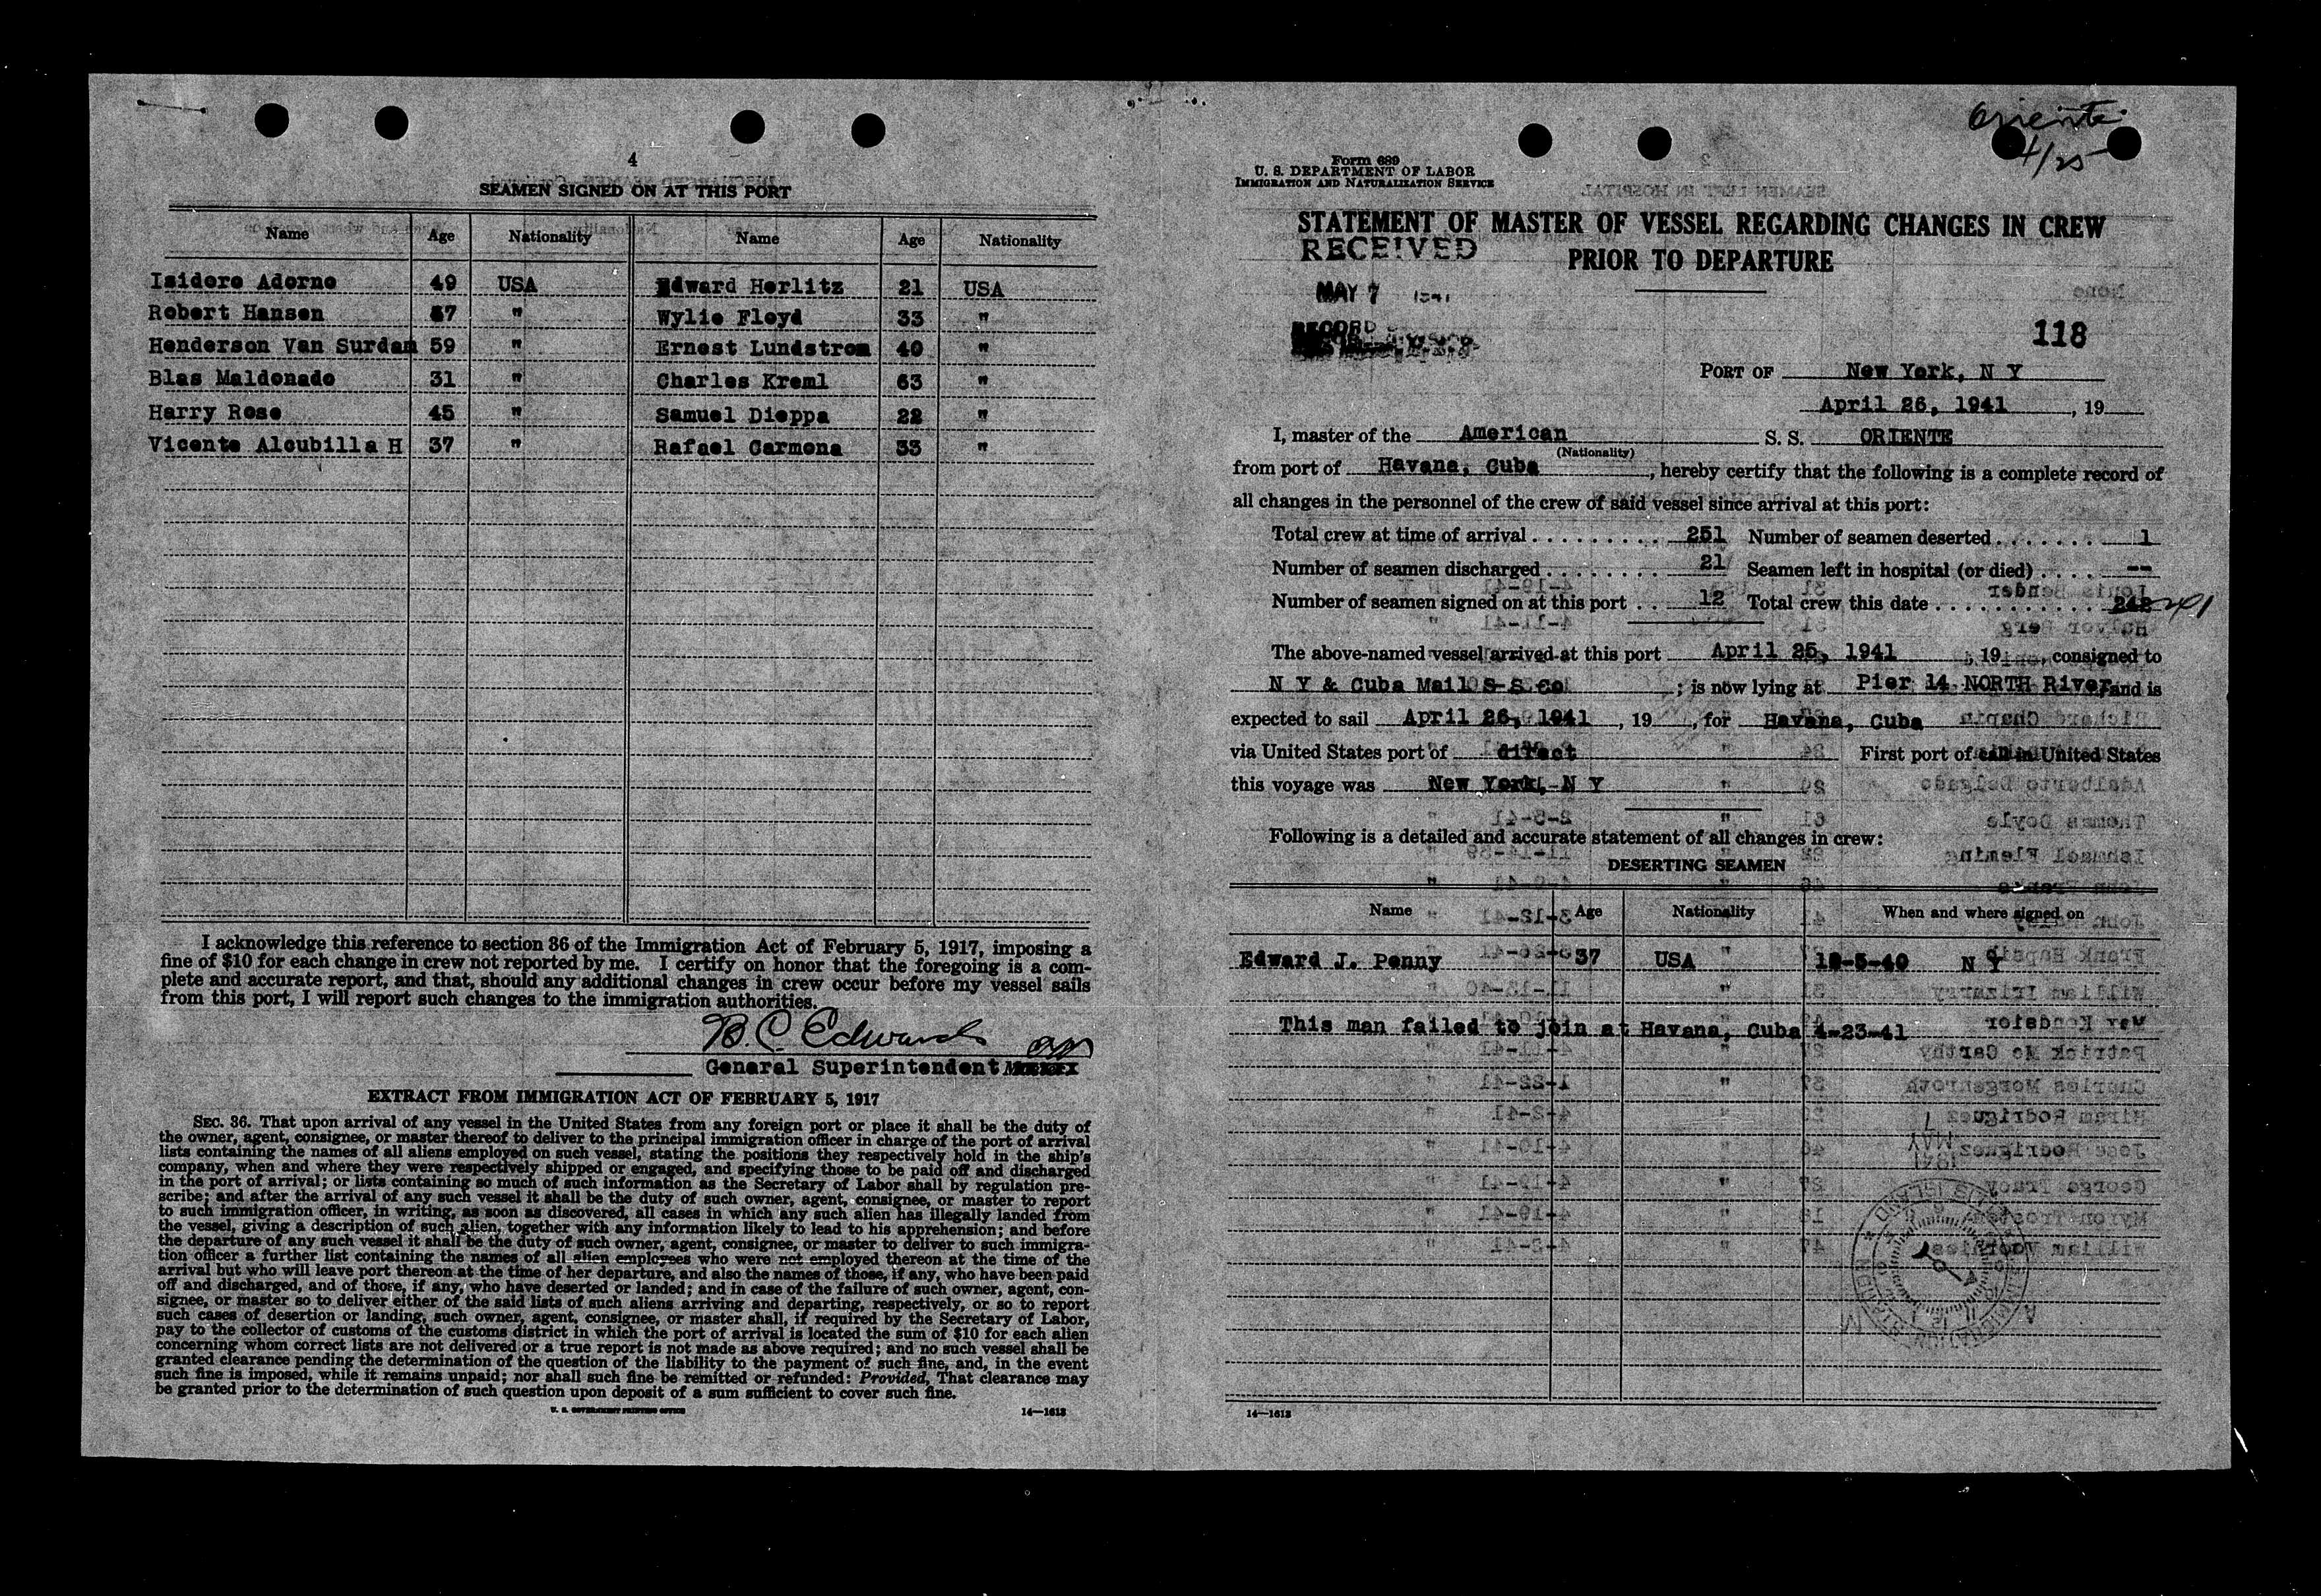 4
SEAMEN SIGNED ON AT THIS PORT
Name Age Nationality Name Age Nationality
Isidoro Adorno 49 USA Edward Horlitz 21 USA
Robert Hansen 57 " Wylie Floyd 33 "
Henderson Van Surdam 59 " Ernest Lundstrom 40 "
Blas Maldonado 31 " Charles Kreml 63 "
Harry Rose 45 " Samuel Dieppa 22 "
Vicente Alcubilla H 37 " Rafael Carmona 33 "
I acknowledge this reference to section 36 of the Immigration Act of February 5, 1917, imposing a
fine of $10 for each change in crew not reported by me. I certify on honor that the foregoing is a com-
plete and accurate report, and that, should any additional changes in crew occur before my vessel sails
from this port, I will report such changes to the immigration authorities.
B. C. Edwards
General Superintendent
EXTRACT FROM IMMIGRATION ACT OF FEBRUARY 5, 1917
SEC. 36. That upon arrival of any vessel in the United States from any foreign port or place it shall be the duty of
the owner, agent, consignee, or master thereof to deliver to the principal immigration officer in charge of the port of arrival
lists containing the names of all aliens employed on such vessel, stating the positions they respectively hold in the ship's
company, when and where they were respectively shipped or engaged, and specifying those to be paid off and discharged
in the port of arrival; or lists containing so much of such information as the Secretary of Labor shall by regulation pre-
scribe; and after the arrival of any such vessel it shall be the duty of such owner, agent, consignee, or master to report
to such immigration officer, in writing, as soon as discovered, all cases in which any such alien has illegally landed from
the vessel, giving a description of such alien, together with any information likely to lead to his apprehension; and before
the departure of any such vessel it shall be the duty of such owner, agent, consignee, or master to deliver to such immigra-
tion officer a further list containing the names of all alien employees who were not employed thereon at the time of the
arrival but who will leave port thereon at the time of her departure, and also the names of those, if any, who have been paid
off and discharged, and of those, if any, who have deserted or landed; and in case of the failure of such owner, agent, con-
signee, or master so to deliver either of the said lists of such aliens arriving and departing, respectively, or so to report
such cases of desertion or landing, such owner, agent, consignee, or master shall, if required by the Secretary of Labor,
pay to the collector of customs of the customs district in which the port of arrival is located the sum of $10 for each alien
concerning whom correct lists are not delivered or a true report is not made as above required; and no such vessel shall be
granted clearance pending the determination of the question of the liability to the payment of such fine, and, in the event
such fine is imposed, while it remains unpaid; nor shall such fine be remitted or refunded: Provided, That clearance may
be granted prior to the determination of such question upon deposit of a sum sufficient to cover such fine.
U. S. GOVERNMENT PRINTING OFFICE 14—1613
Oriente
4/25
Form 689
U. S. DEPARTMENT OF LABOR
IMMIGRATION AND NATURALIZATION SERVICE
STATEMENT OF MASTER OF VESSEL REGARDING CHANGES IN CREW
PRIOR TO DEPARTURE
RECEIVED
MAY 7 1941
RECORD
118
PORT OF New York, N Y
April 26, 1941, 19
I, master of the American S. S. ORIENTE
(Nationality)
from port of Havana, Cuba, hereby certify that the following is a complete record of
all changes in the personnel of the crew of said vessel since arrival at this port:
Total crew at time of arrival 251 Number of seamen deserted 1
Number of seamen discharged 21 Seamen left in hospital (or died) --
Number of seamen signed on at this port 12 Total crew this date 242 241
The above-named vessel arrived at this port April 25, 1941, 19, consigned to
N Y & Cuba Mail S S Co; is now lying at Pier 14 NORTH River and is
expected to sail April 26, 1941, 19, for Havana, Cuba
via United States port of direct First port of call in United States
this voyage was New York, N Y
Following is a detailed and accurate statement of all changes in crew:
DESERTING SEAMEN
Name Age Nationality When and where signed on
Edward J. Penny 37 USA 12-5-40 N Y
This man failed to join at Havana, Cuba 4-23-41
14—1613